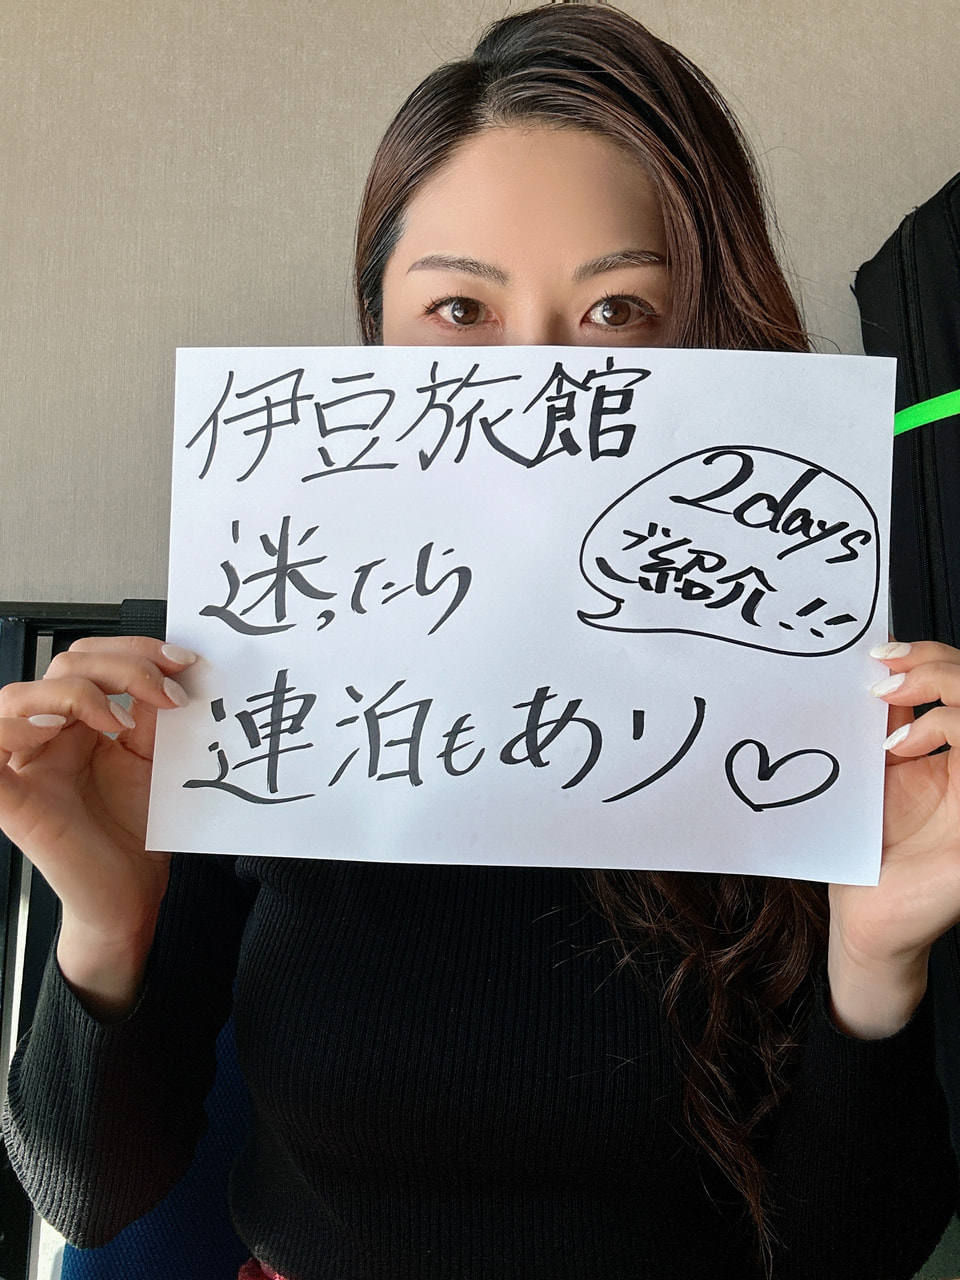 伊豆旅館
迷ったら
連泊もあり♡
2days
ご紹介!!